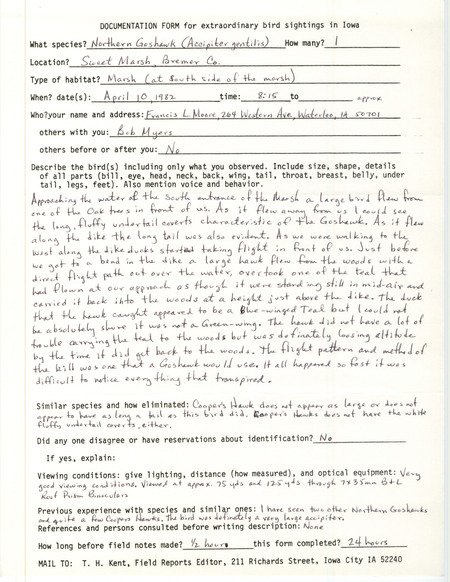 DOCUMENTATION FORM for extraordinary bird sightings in Iowa
What species? Northern Goshawk (Accipiter gentilis) How many? 1
Location? Sweet Marsh, Bremer Co.
Type of habitat? Marsh (at South side of the marsh)
When? date(s): April 10, 1982 time: 8:15 to approx.
Who? your name and address: Francis L. Moore, 269 Western Ave, Waterloo, IA 50701
others with you: Bob Myers
others before or after you: No
Describe the bird(s) including only what you observed. Include size, shape, details
of all parts (bill, eye, head, neck, back, wing, tail, throat, breast, belly, under
tail, legs, feet). Also mention voice and behavior.
Approaching the water of the South entrance of the Marsh a large bird flew from
one of the Oak trees in front of us. As it flew away from us I could see
the long, fluffy undertail coverts characteristic of the Goshawk. As it flew
along the dike the long tail was also evident. As we were walking to the
West along the dike ducks started taking flight in front of us. Just before
we got to a bend in the dike a large hawk flew from the woods with a
direct flight path out over the water, overtook one of the teal that
had flown at our approach as though it were standing still in mid-air and
carried it back into the woods at a height just above the dike. The duck
that the hawk caught appeared to be a Blue-winged Teal but I could not
be absolutely shure it was not a Green-wing. The hawk did not have a lot of
trouble carrying the teal to the woods but was definately loosing eltitude
by the time it did get back to the woods. The flight pattern and method of
the kill was one that a Goshawk would use. It all happened so fast it was
difficult to notice everything that transpired.
Similar species and how eliminated: Cooper's Hawk does not appear as large or does not
appear to have as long a tail as this bird did. Cooper's Hawks does not have the white
fluffy undertail coverts, either.
Did any one disagree or have reservations about identification? No
If yes, explain:
Viewing conditions: give lighting, distance (how measured), and optical equipment: Very
good viewing conditions. Viewed at approx. 75 yds and 125 yds through 7x35mm B+L
Roof Prism Binoculars
Previous experience with species and similar ones: I have seen two other Northern Goshawks
and quite a few Coopers Hawks. The bird was definately a very large accipiter.
References and persons consulted before writing description: None
How long before field notes made? 1/2 hour this form completed? 24 hours
MAIL TO: T. H. Kent, Field Reports Editor, 211 Richards Street, Iowa City IA 52240